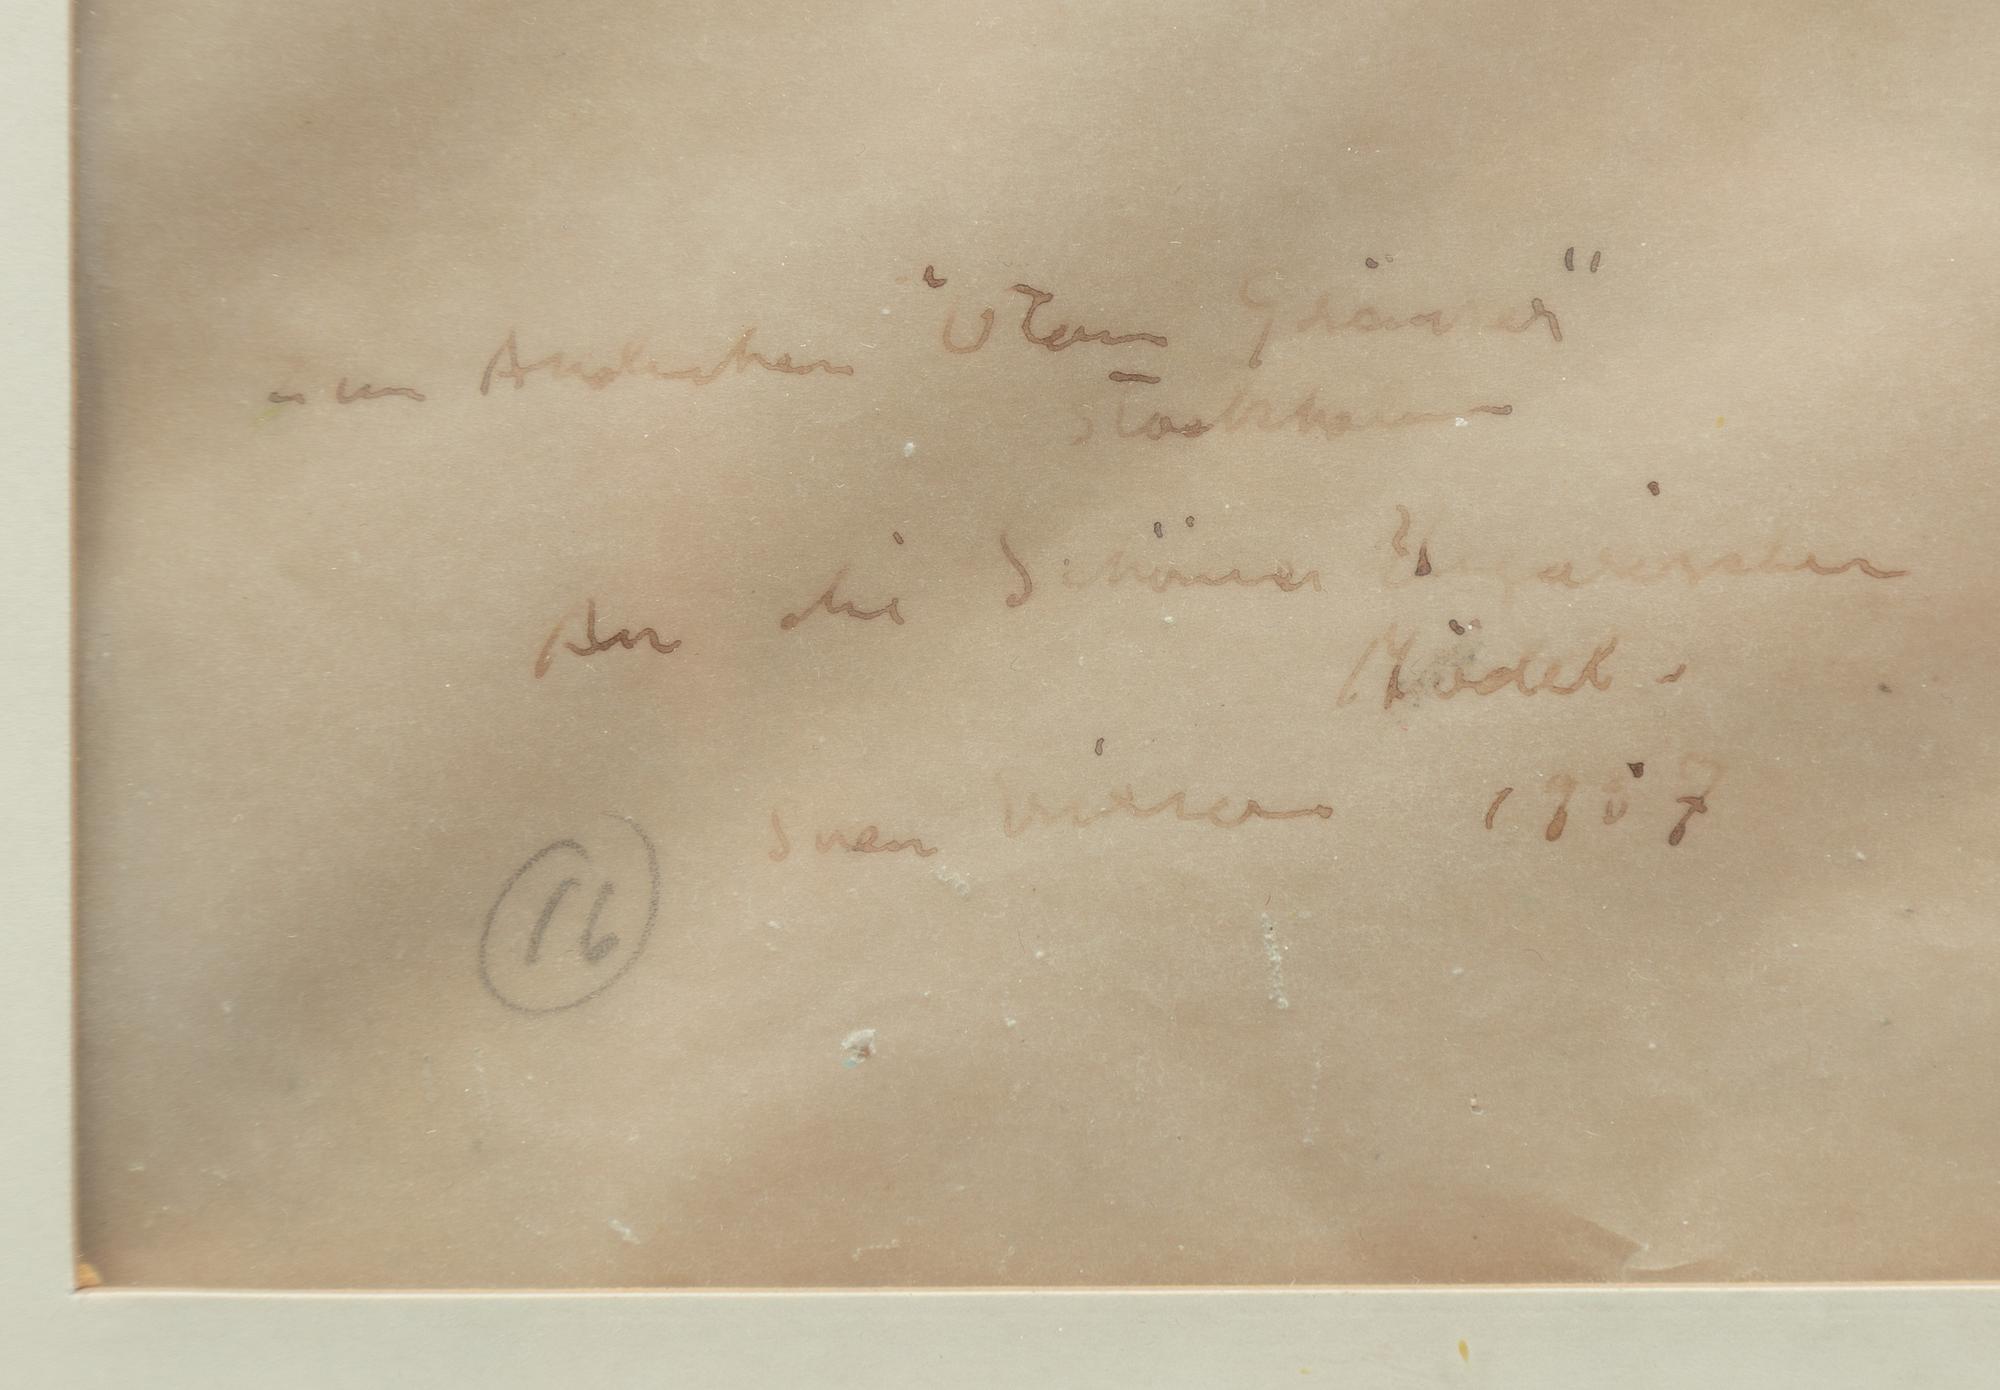 Zum Andenken "Utan Gränser"
Stockholm
An die Schönen Ungarischen
Mädel.
Sven 1957
16